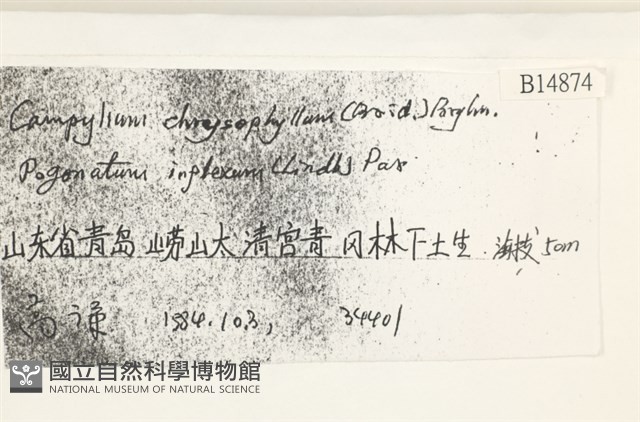 B14874
Campylium chrysophyllum (Brid.) Bryhn.
Pogonatum inflexum (Lindb) Par
山东省青岛 崂山太清宫青冈林下土生. 海拔 50m
高谦 1984.10.3, 34401
國立自然科學博物館
NATIONAL MUSEUM OF NATURAL SCIENCE